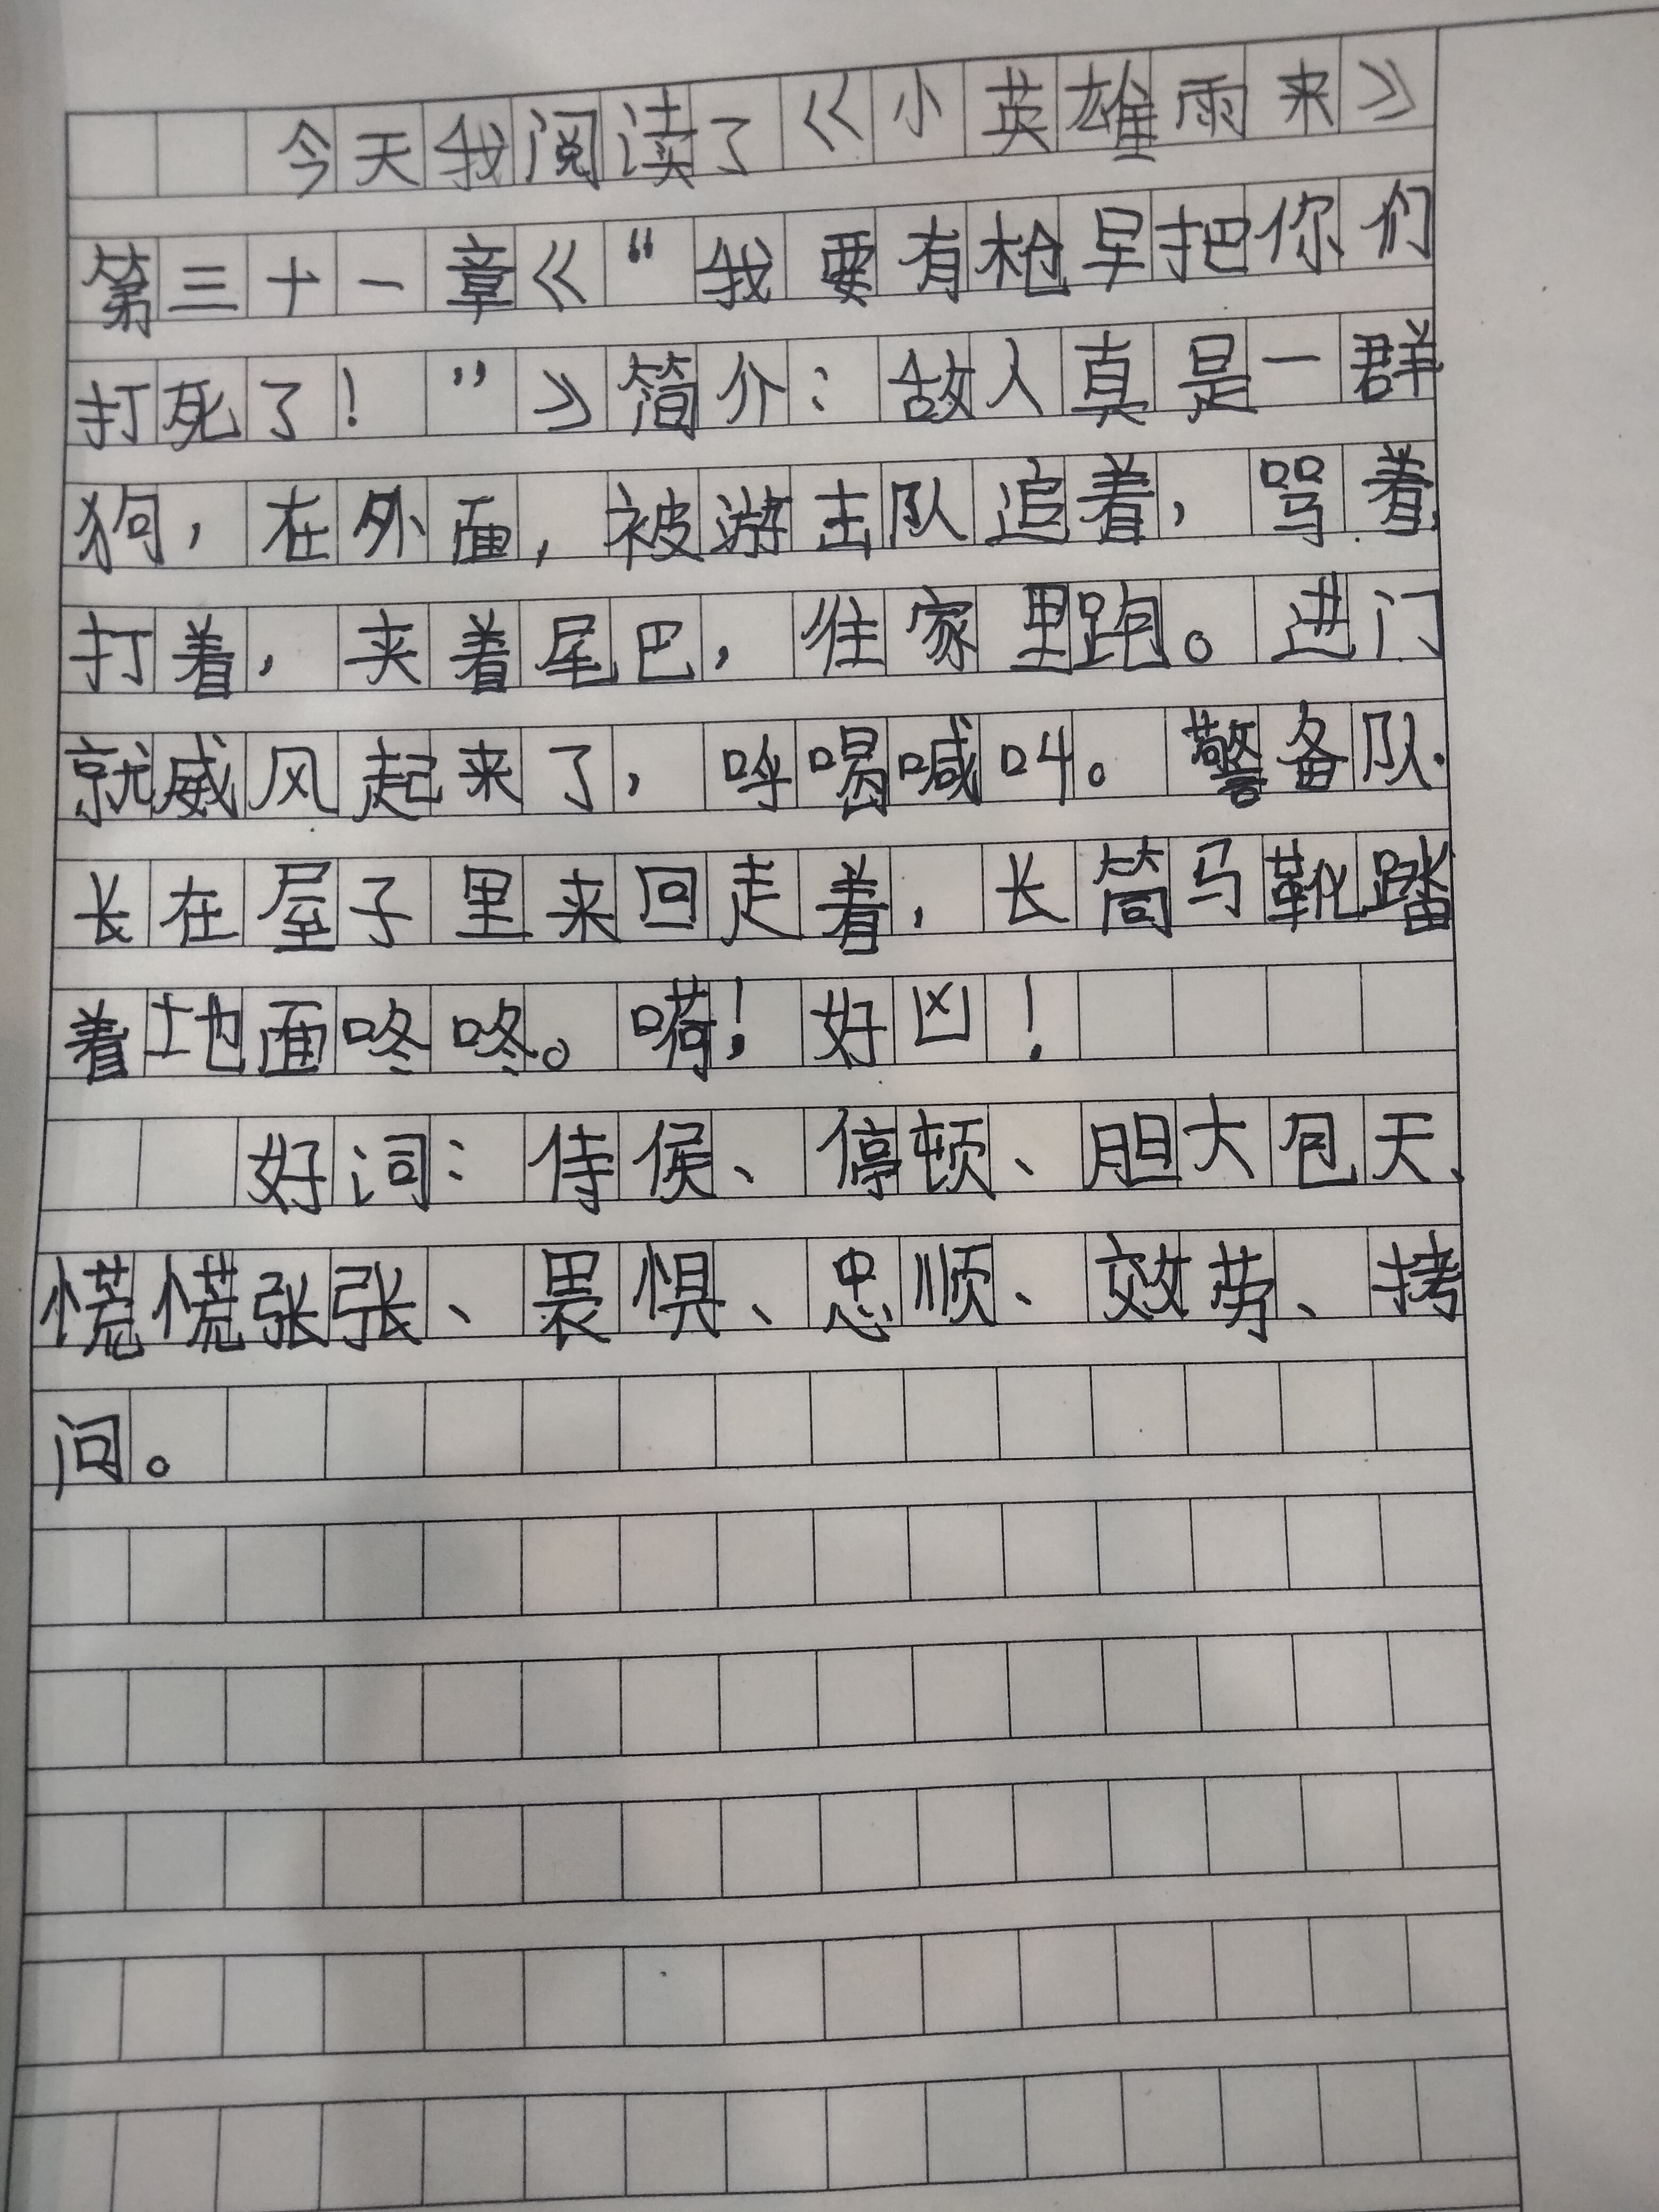 今天我阅读了《小英雄雨来》
第三十一章《“我要有枪早把你们
打死了！”》简介：敌人真是一群
狗，在外面，被游击队追着，骂着，
打着，夹着尾巴，往家里跑。进门
就威风起来了，呼喝喊叫。警备队
长在屋子里来回走着，长筒马靴踏
着地面咚咚。嗬！好凶！
好词：侍侯、停顿、胆大包天、
慌慌张张、畏惧、忠顺、效劳、拷
问。